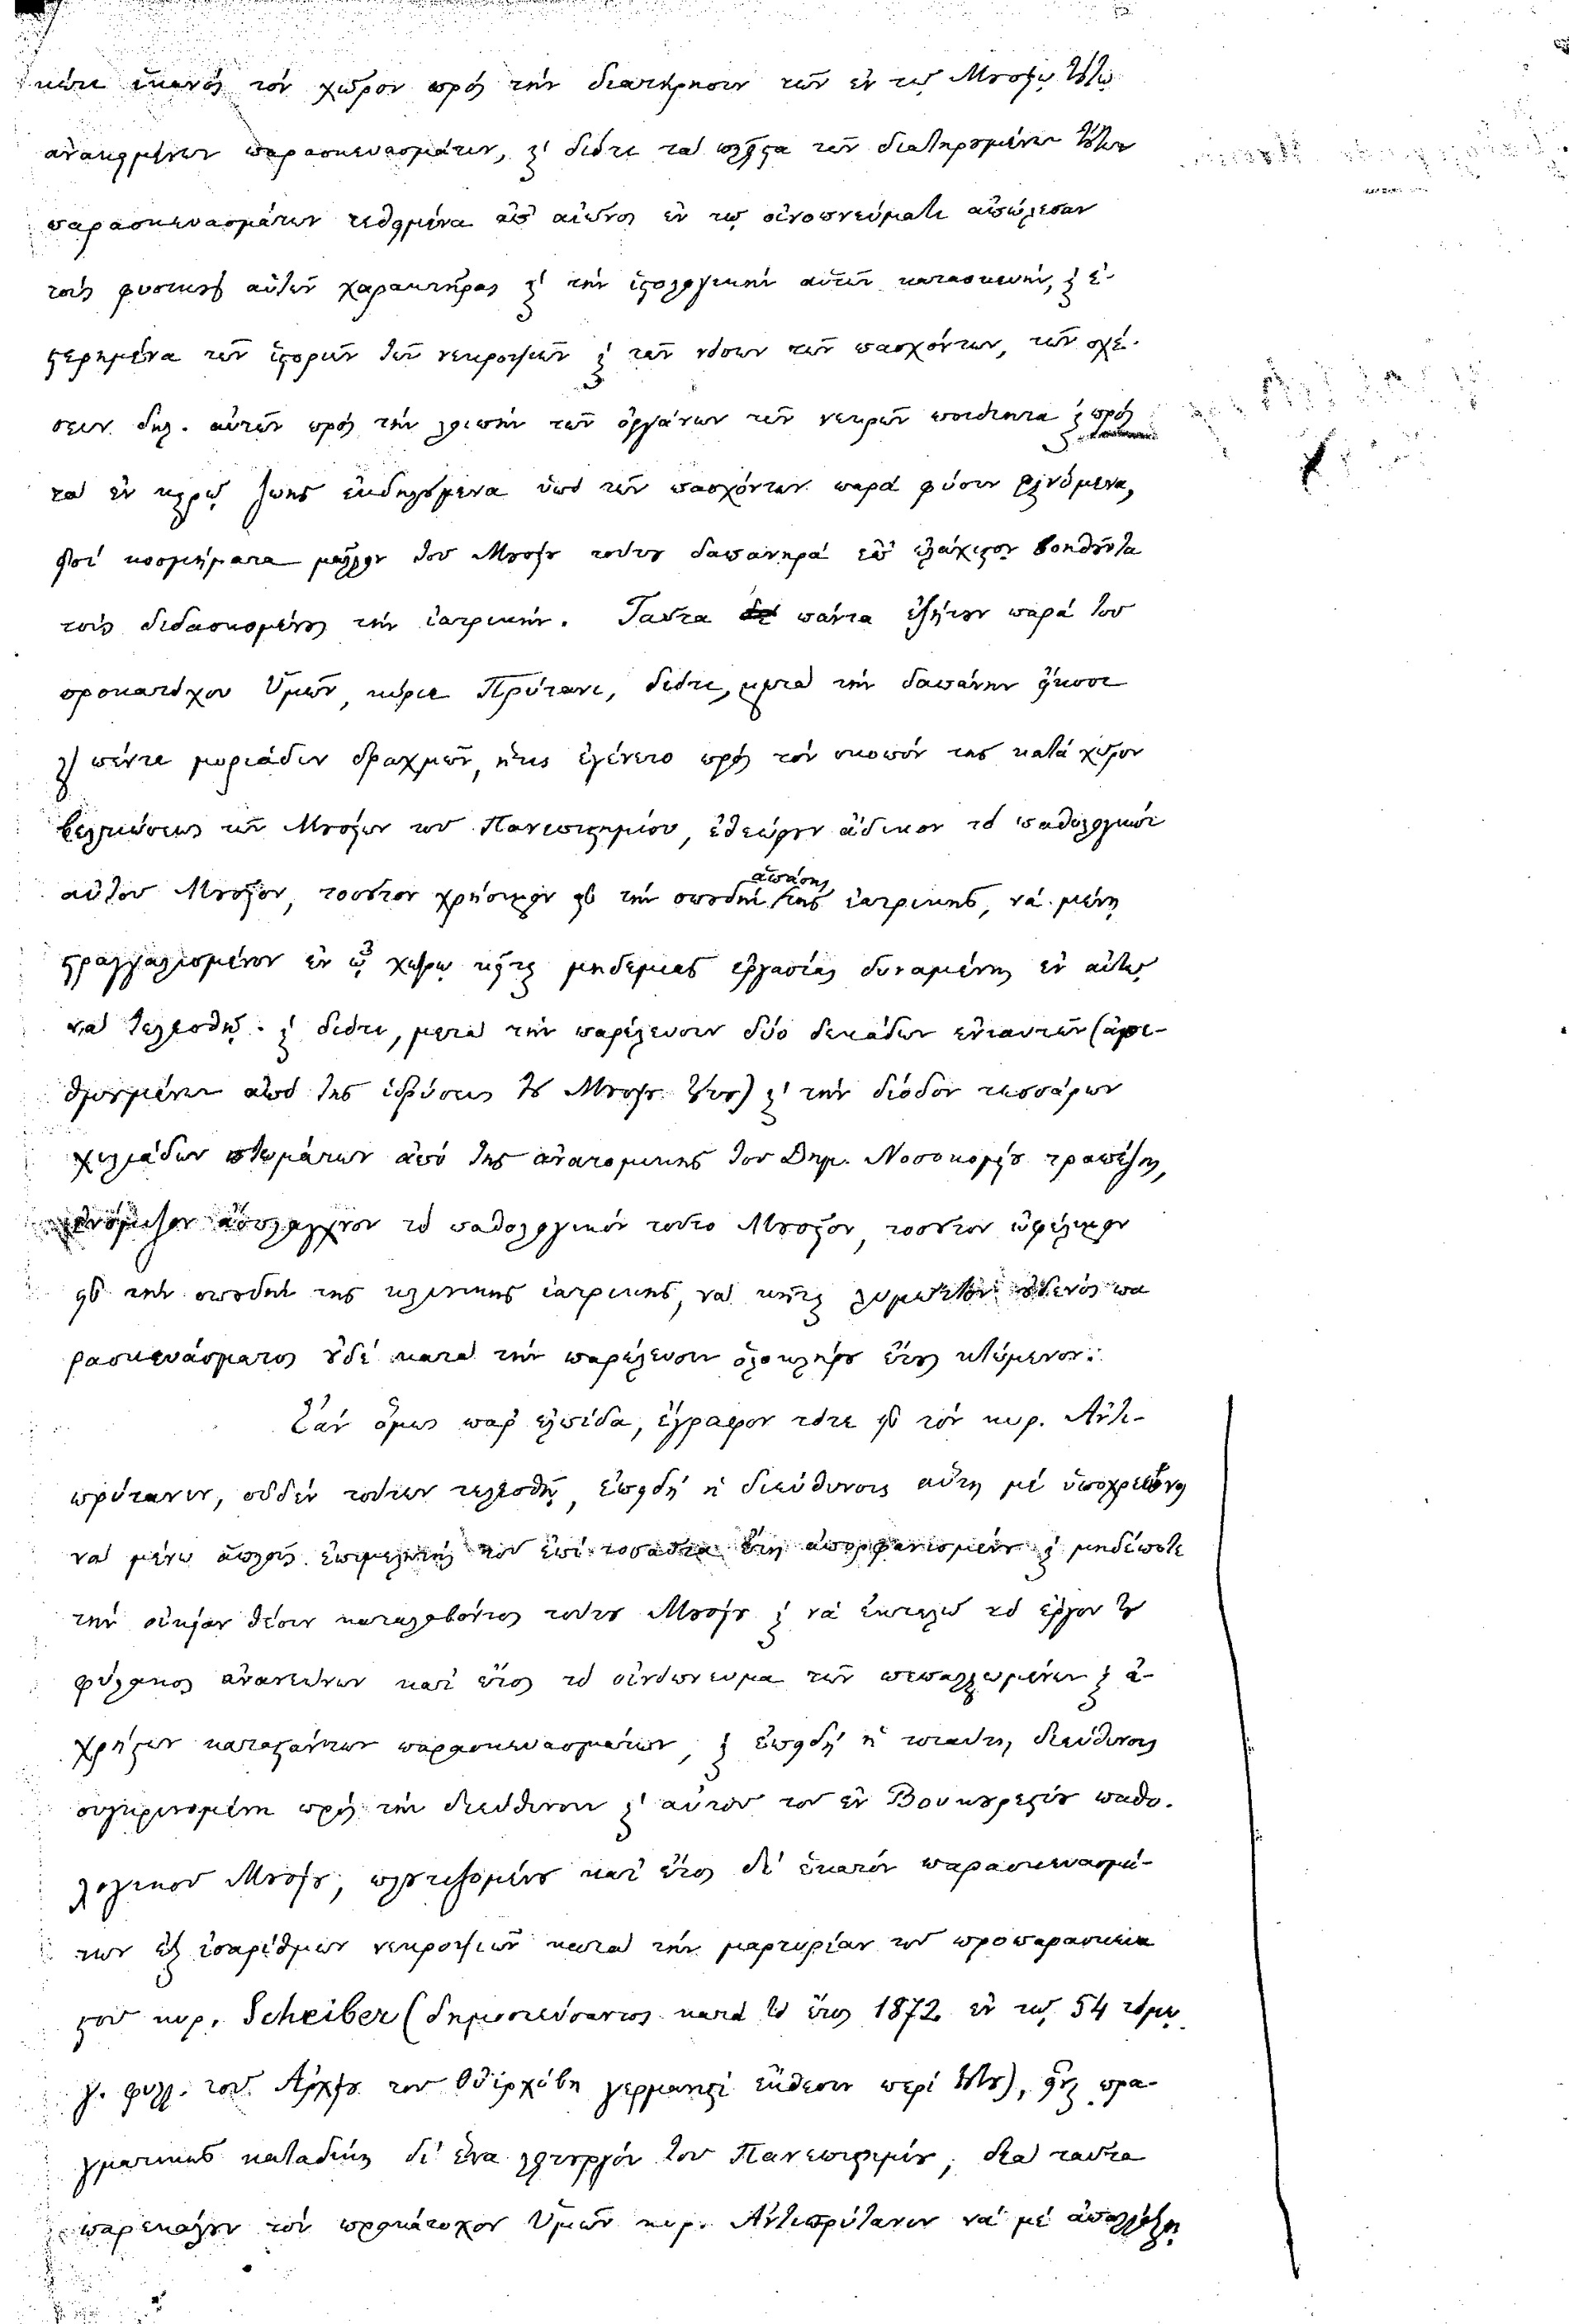 κῆται ἱκανὸς τὸν χῶρον πρὸς τὴν διατήρησιν τῶν ἐν τῷ Μουσείῳ τούτῳ
ἀνακειμένων παρασκευασμάτων, καὶ διότι τὰ πλεῖστα τῶν διατηρουμένων τούτων
παρασκευασμάτων τεθειμένα ἀπ' αἰῶνος ἐν τῷ οἰνοπνεύματι ἀπώλεσαν
τοὺς φυσικοὺς αὐτῶν χαρακτῆρας καὶ τὴν ἱστολογικὴν αὐτῶν κατασκευήν, καὶ ἐ-
στερημένα τῶν ἱστοριῶν τῶν νεκροψιῶν καὶ τῶν νόσων τῶν πασχόντων, τῶν σχέ-
σεων δηλ. αὐτῶν πρὸς τὴν λοιπὴν τῶν ὀργάνων τῶν νεκρῶν ποιότητα καὶ πρὸς
τὰ ἐν καιρῷ ζωῆς ἐκδηλούμενα ὑπὸ τῶν πασχόντων παρὰ φύσιν γινόμενα,
εἰσὶ κοσμήματα μᾶλλον τοῦ Μουσείου τούτου δαπανηρὰ ἐπ' ἐλάχιστον βοηθοῦντα
τοῖς διδασκομένοις τὴν ἰατρικήν. Ταῦτα πάντα ἐζήτουν παρὰ τοῦ
προκατόχου Ὑμῶν, κύριε Πρύτανι, διότι, μετὰ τὴν δαπάνην εἴκοσι
καὶ πέντε μυριάδων δραχμῶν, ἥτις ἐγένετο πρὸς τὸν σκοπὸν τῆς κατὰ χῶρον
βελτιώσεως τῶν Μουσείων τοῦ Πανεπιστημίου, ἐθεώρουν ἄδικον τὸ παθολογικὸν
αὐτοῦ Μουσεῖον, τοσοῦτον χρήσιμον εἰς τὴν σπουδὴν ἁπάσης τῆς ἰατρικῆς, νὰ μένῃ
στραγγαλισμένον ἐν ᾧ χώρῳ κεῖται μηδεμιᾶς ἐργασίας δυναμένης ἐν αὐτῷ
νὰ τελεσθῇ· καὶ διότι, μετὰ τὴν παρέλευσιν δύο δεκάδων ἐνιαυτῶν (ἀρι-
θμουμένων ἀπὸ τῆς ἱδρύσεως τοῦ Μουσείου τούτου) καὶ τὴν δίοδον τεσσάρων
χιλιάδων πτωμάτων ἀπὸ τῆς ἀνατομικῆς τοῦ Δημ. Νοσοκομείου τραπέζης,
ἐνόμιζον ἄσπλαγχνον τὸ παθολογικὸν τοῦτο Μουσεῖον, τοσοῦτον ὠφέλιμον
εἰς τὴν σπουδὴν τῆς κλινικῆς ἰατρικῆς, νὰ κῆται οὐδενὸς πα
ρασκευάσματος οὐδὲ κατὰ τὴν παρέλευσιν ὁλοκλήρου ἔτους κτώμενον.
Ἐὰν ὅμως παρ' ἐλπίδα, ἔγραφον τότε εἰς τὸν κυρ. Ἀντι-
πρύτανιν, οὐδὲν τούτων τελεσθῇ, ἐπειδὴ ἡ διεύθυνσις αὕτη μὲ ὑποχρεώνει
νὰ μένω ἁπλοῦς ἐπιμελητὴς τοῦ ἐπὶ τοσαῦτα ἔτη ἀπορφανισμένου καὶ μηδέποτε
τὴν οἰκείαν θέσιν καταλαβόντος τούτου Μουσείου καὶ νὰ ἐκτελῶ τὸ ἔργον τοῦ
φύλακος ἀνανεώνων κατ' ἔτος τὸ οἰνόπνευμα τῶν πεπαλαιωμένων καὶ ἀ-
χρήστων καταστάντων παρασκευασμάτων, καὶ ἐπειδὴ ἡ τοιαύτη διεύθυνσις
συγκρινομένη πρὸς τὴν διεύθυνσιν καὶ αὐτοῦ τοῦ ἐν Βουκουρεστίῳ παθο-
λογικοῦ Μουσείου, πλουτιζομένου κατ' ἔτος δι' ἑκατὸν παρασκευασμά-
των ἐξ ἰσαρίθμων νεκροψιῶν κατὰ τὴν μαρτυρίαν τοῦ προπαρασκευα
στοῦ κυρ. Scheiber (δημοσιεύσαντος κατὰ τὸ ἔτος 1872 ἐν τῷ 54 τόμῳ
γ. φυλλ. τοῦ Ἀρχείου τοῦ Οὐϊρχόβη γερμανιστὶ ἔκθεσιν περὶ τούτου), εἶναι πρα-
γματικῶς καταδίκη δι' ἕνα λειτουργὸν τοῦ Πανεπιστημίου, διὰ ταῦτα
παρεκάλουν τὸν προκάτοχον Ὑμῶν κυρ. Ἀντιπρύτανιν νὰ μὲ ἀπαλλάξῃ